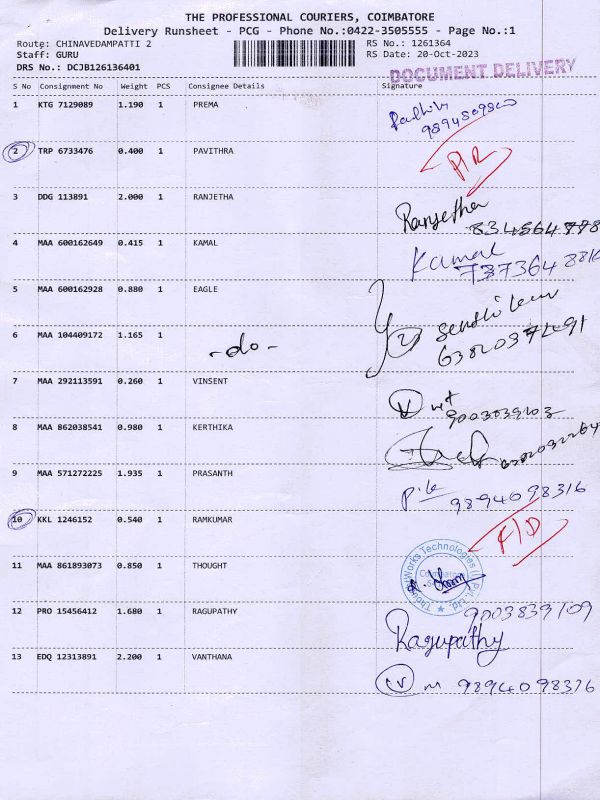 THE PROFESSIONAL COURIERS, COIMBATORE
Delivery Runsheet - PCG - Phone No.:0422-3505555 - Page No.:1
Route: CHINAVEDAMPATTI 2 RS No.: 1261364
Staff: GURU RS Date: 20-Oct-2023
DRS No.: DCJB126136401
DOCUMENT DELIVERY
S No Consignment No Weight PCS Consignee Details Signature
1 KTG 7129089 1.190 1 PREMA
2 TRP 6733476 0.400 1 PAVITHRA
3 DDG 113891 2.000 1 RANJETHA Ranjetha
4 MAA 600162649 0.415 1 KAMAL Kamal
5 MAA 600162928 0.880 1 EAGLE
6 MAA 104409172 1.165 1 -do-
7 MAA 292113591 0.260 1 VINSENT
8 MAA 862038541 0.980 1 KERTHIKA
9 MAA 571272225 1.935 1 PRASANTH 9894098316
10 KKL 1246152 0.540 1 RAMKUMAR F/D
11 MAA 861893073 0.850 1 THOUGHT
12 PRO 15456412 1.680 1 RAGUPATHY 9003839109
Ragupathy
13 EDQ 12313891 2.200 1 VANTHANA
9894098376